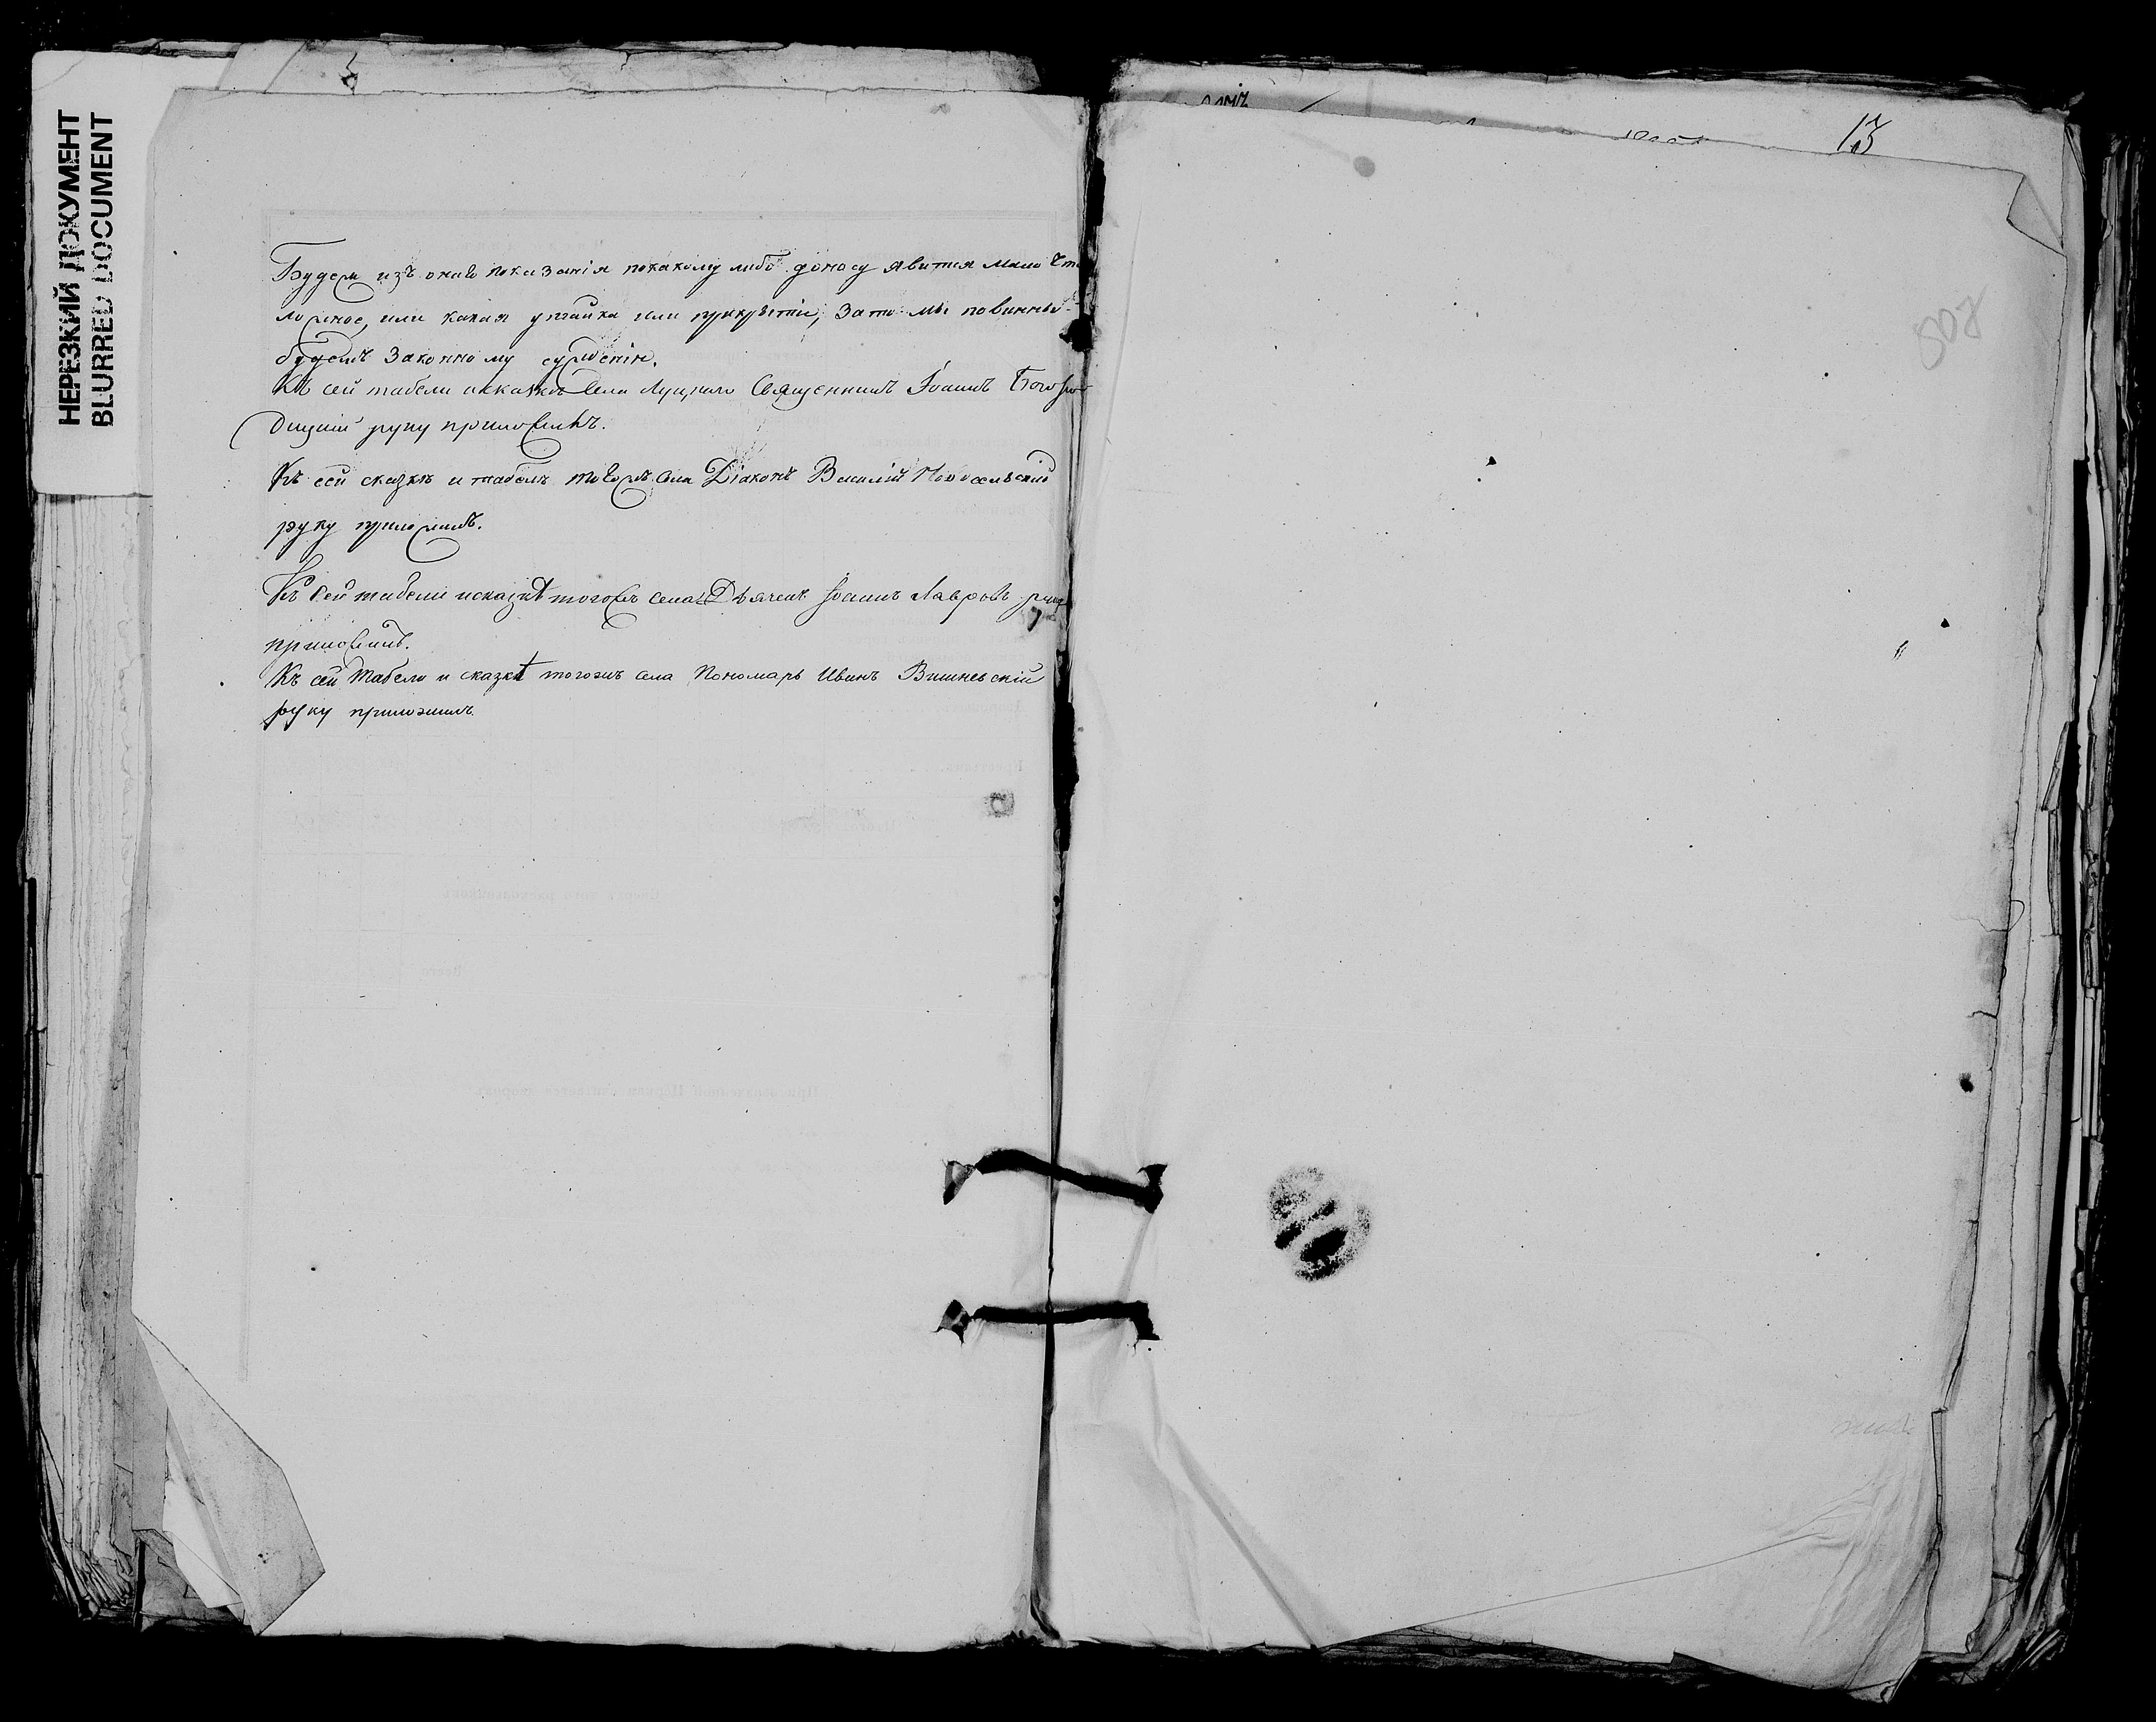 НЕРЕЗКИЙ ДОКУМЕНТ
BLURRED DOCUMENT
Будеже изъ онаго показанія покакому либо доносу явится мало что
ложное, или какая утайка или прикрытіе, зато мы повинны
будемъ законному сужденію.
Къ сей табели исказкѣ села Священникъ Іоаннъ
руку приложилъ.
Къ сей сказкѣ и табелѣ тогожъ села Діаконъ Василій Новосельскій
руку приложилъ.
Къ сей табели исказкѣ тогожъ села Дьячекъ Іоаннъ Лавровъ руку
приложилъ.
Къ сей табели и сказкѣ тогожъ села Пономарь Иванъ Вишневскій
руку приложилъ.
13
807